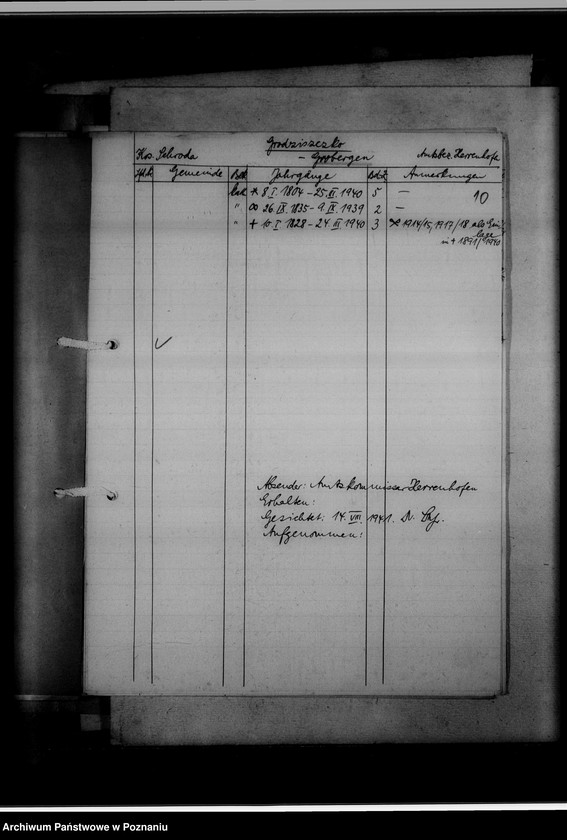 Krs. Schroda
Grodziszczko
- Grobergen
Amtsbez. Herrenhofen
Gemeinde
Bek.
Jahrgänge
Bd.Z.
Anmerkungen
kath. * 8 I. 1804 - 25. XI. 1940 5 — 10
" ∞ 26. IX. 1835 - 9. IX. 1939 2 —
" + 10. I. 1828 - 24. III. 1940 3 * 1914/15, 1917/18 als Ein
lage
in + 1891/1940
Absender: Amtskommissar Herrenhofen
Erhalten:
Gesichtet: 14. VIII. 1941. Dr.
Aufgenommen:
Archiwum Państwowe w Poznaniu